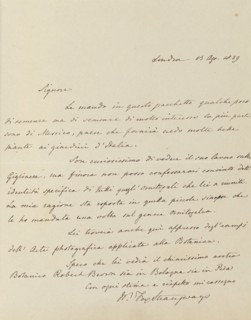 Londra 13 Ap. 1839
Signore
Le mando in questo pacchetto qualche poco
di semenze ma di semenze di molto interesse la più parte
sono di Messico, paese che fornirà modo molte belle
pianti ai giardini d'Italia.
Son curiosissimo di vedere il suo lavoro sulle
Gigliacee. ma finora non posso confessarmi convinto dell'
identità specifica di tutti quegli
La mia ragione sta esposta in quella piccola
che le ho mandata una volta sul genere
Lei troverà anche quì appresso degl' esempi
dell' Arte photografica applicata alla Botanica.
Spero che lei vedrà il chiarissimo nostro
Botanico Robert Brown sia in Bologna sia in Pisa
Con ogni stima e rispetto mi consegno
W. Fox Strangways